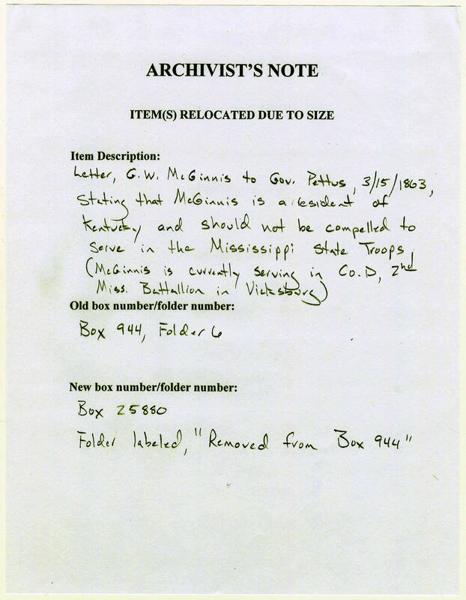 ARCHIVIST'S NOTE
ITEM(S) RELOCATED DUE TO SIZE
Item Description:
Letter, G.W. McGinnis to Gov. Pettus, 3/15/1863,
stating that McGinnis is a resident of
Kentucky and should not be compelled to
serve in the Mississippi State Troops
(McGinnis is currently serving in Co. D, 2nd
Miss. Battallion in Vicksburg)
Old box number/folder number:
Box 944, Folder 6
New box number/folder number:
Box 25880
Folder labeled, "Removed from Box 944"